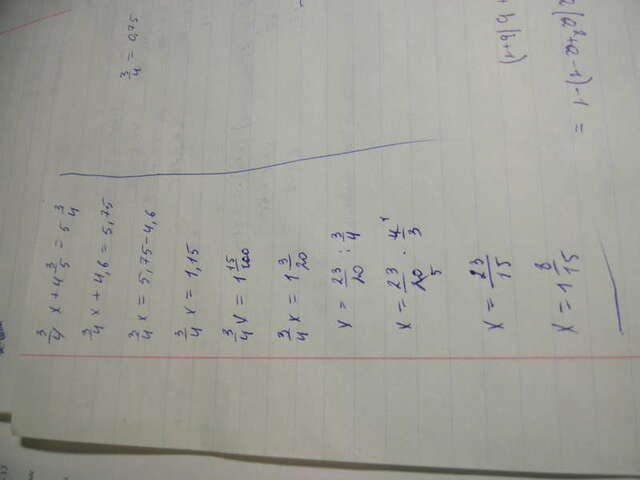 3/4 x + 4 3/5 = 5 3/4
3/4 x + 4,6 = 5,75
3/4 x = 5,75 - 4,6
3/4 x = 1,15
3/4 x = 1 15/100
3/4 x = 1 3/20
x = 23/20 : 3/4
x = 23/20 5 · 4 1/3
x = 23/15
x = 1 8/15
3/4 = 0,75